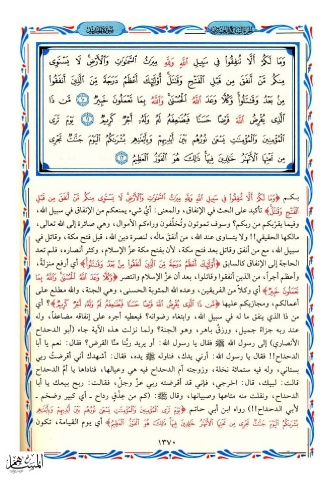 وَمَا لَكُمْ أَلَّا تُنفِقُوا فِي سَبِيلِ اللَّهِ وَلِلَّهِ مِيرَاثُ السَّمَاوَاتِ وَالْأَرْضِ لَا يَسْتَوِي
مِنكُم مَّنْ أَنفَقَ مِن قَبْلِ الْفَتْحِ وَقَاتَلَ أُولَٰئِكَ أَعْظَمُ دَرَجَةً مِّنَ الَّذِينَ أَنفَقُوا
مِن بَعْدُ وَقَاتَلُوا وَكُلًّا وَعَدَ اللَّهُ الْحُسْنَىٰ وَاللَّهُ بِمَا تَعْمَلُونَ خَبِيرٌ ۝١٠ مَّن ذَا
الَّذِي يُقْرِضُ اللَّهَ قَرْضًا حَسَنًا فَيُضَاعِفَهُ لَهُ وَلَهُ أَجْرٌ كَرِيمٌ ۝١١ يَوْمَ تَرَى
الْمُؤْمِنِينَ وَالْمُؤْمِنَاتِ يَسْعَىٰ نُورُهُم بَيْنَ أَيْدِيهِمْ وَبِأَيْمَانِهِم بُشْرَاكُمُ الْيَوْمَ جَنَّاتٌ تَجْرِي
مِن تَحْتِهَا الْأَنْهَارُ خَالِدِينَ فِيهَا ذَٰلِكَ هُوَ الْفَوْزُ الْعَظِيمُ ۝١٢
بكم ﴿وَمَا لَكُمْ أَلَّا تُنفِقُوا فِي سَبِيلِ اللَّهِ وَلِلَّهِ مِيرَاثُ السَّمَاوَاتِ وَالْأَرْضِ لَا يَسْتَوِي مِنكُم مَّنْ أَنفَقَ مِن قَبْلِ
الْفَتْحِ وَقَاتَلَ﴾ تأكيد على الحث في الإنفاق، والمعنى: أيُّ شيء يمنعكم من الإنفاق في سبيل الله،
وفيما يقربكم من ربكم؟ وسوف تموتون وتُخلِّفون وراءكم الأموال، وهي صائرة إلى الله تعالى،
مالكها الحقيقي!! ولا يتساوى عند الله، من أنفق ماله، لنصرة دين الله، قبل فتح مكة، وقاتل في
سبيل الله، مع من أنفق وقاتل بعد فتح مكة، لأن بفتح مكة عزَّ الإسلام، وكثر أنصاره، فلم تعد
الحاجة إلى الإنفاق كالسابق ﴿أُولَٰئِكَ أَعْظَمُ دَرَجَةً مِّنَ الَّذِينَ أَنفَقُوا مِن بَعْدُ وَقَاتَلُوا﴾ أي أرفع منزلةً،
وأعظم أجراً، من الذين أنفقوا وقاتلوا، بعد أن عزَّ الإسلام وانتصر ﴿وَكُلًّا وَعَدَ اللَّهُ الْحُسْنَىٰ وَاللَّهُ بِمَا
تَعْمَلُونَ خَبِيرٌ﴾ أي وكلاً من الفريقين، وعده الله المثوبة الحسنى، وهي الجنة، والله مطلع على
أعمالكم، ومجازيكم عليها ﴿مَّن ذَا الَّذِي يُقْرِضُ اللَّهَ قَرْضًا حَسَنًا فَيُضَاعِفَهُ لَهُ وَلَهُ أَجْرٌ كَرِيمٌ﴾؟ أي
من ذا الذي ينفق ما له في سبيل الله، وابتغاء رضوانه؟ فيعطيه أجره على إنفاقه مضاعفاً، وله
عند ربه جزاءٌ جميل، ورزقٌ باهر، وهو الجنة؟ ولما نزلت هذه الآية جاء (أبو الدحداح
الأنصاري) إلى رسول الله ﷺ فقال يا رسول الله: أو يريد ربُّنا منَّا القرض؟ فقال: نعم يا أبا
الدحداح!! فقال يا رسول الله: أرني يدك، فناوله ﷺ يده، فقال: أشهدك أني أقرضتُ ربي
بستاني، وله فيه ستمائة نخلة، وزوجته أم الدحداح فيه هي وعيالها، فناداها يا أمَّ الدحداح
قالت: لبيك، قال: اخرجي، فإني قد أقرضته ربي عزَّ وجلَّ، فقالت: ربح بيعك يا أبا
الدحداح، ونقلت منه متاعها وصبيانها، وقال ﷺ: (كم من عِذْقٍ رداح ـ أي كبير وضخم ـ
لأبي الدحداح!!) رواه ابن أبي حاتم ﴿يَوْمَ تَرَى الْمُؤْمِنِينَ وَالْمُؤْمِنَاتِ يَسْعَىٰ نُورُهُم بَيْنَ أَيْدِيهِمْ وَبِأَيْمَانِهِم
بُشْرَاكُمُ الْيَوْمَ جَنَّاتٌ تَجْرِي مِن تَحْتِهَا الْأَنْهَارُ خَالِدِينَ فِيهَا ذَٰلِكَ هُوَ الْفَوْزُ الْعَظِيمُ﴾ أي يوم القيامة، تكون
١٣٧٠